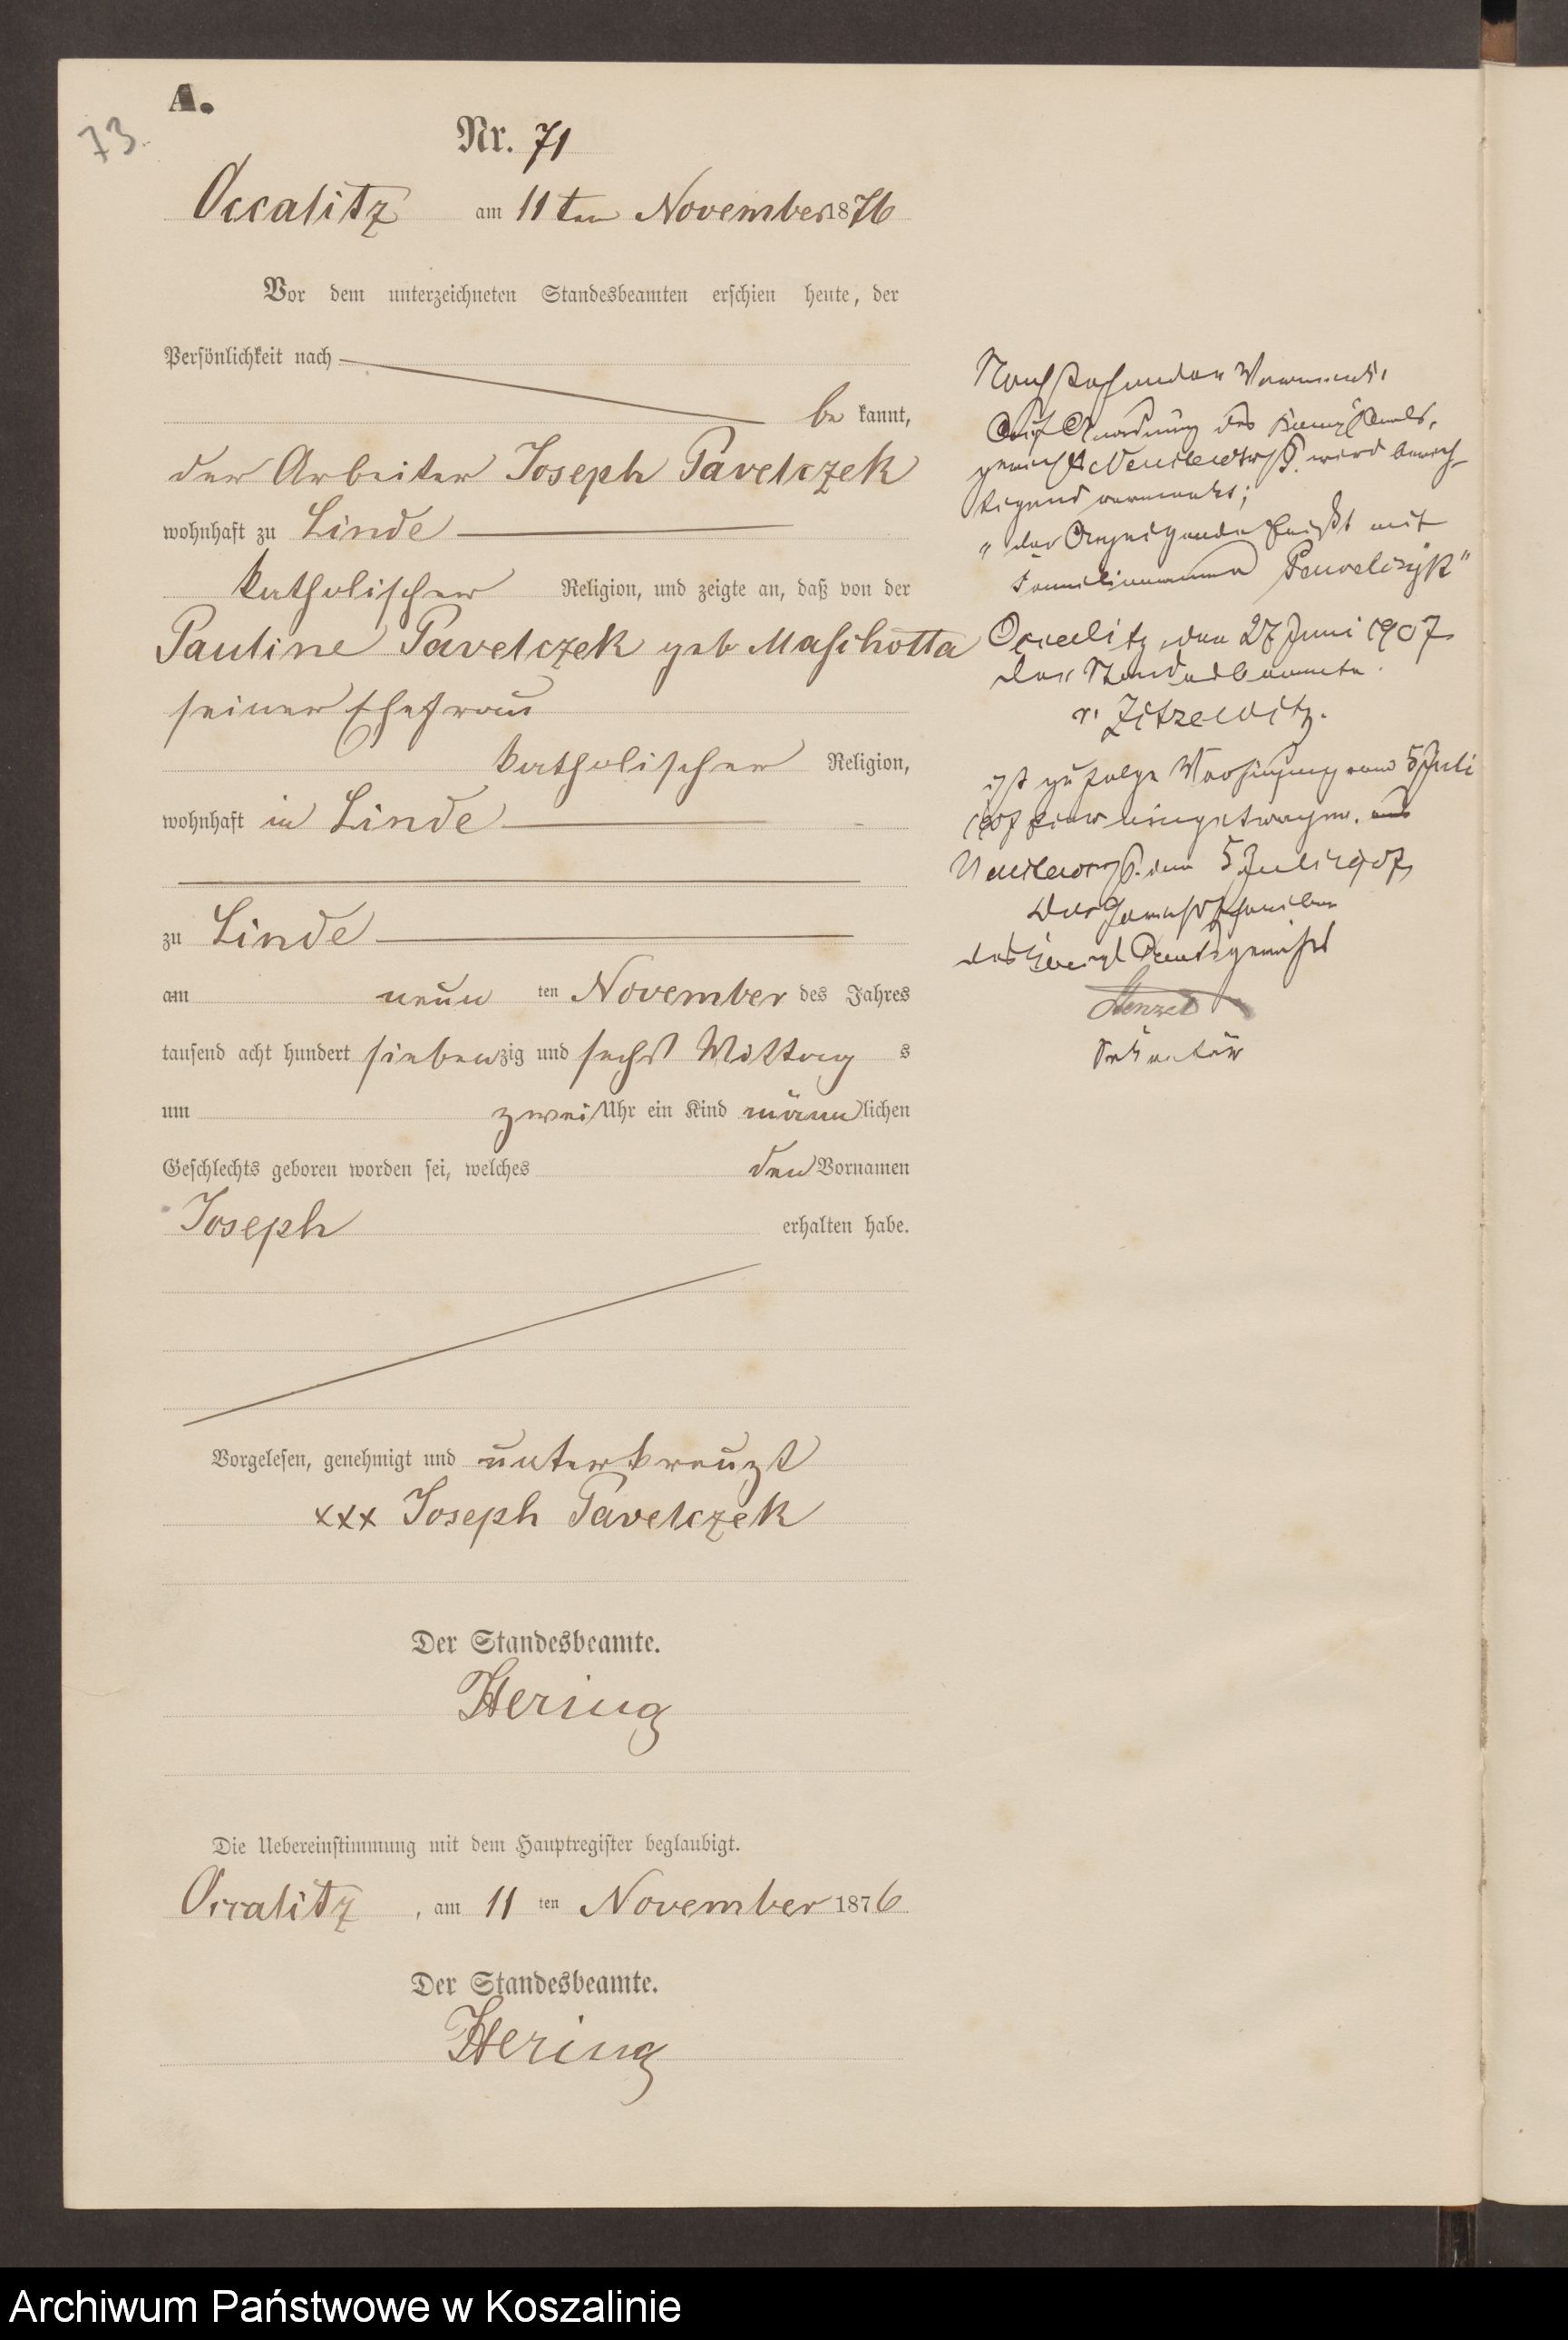 A.
73.
Nr. 71
Occalitz am 11ten November 1876
Vor dem unterzeichneten Standesbeamten erschien heute, der
Persönlichkeit nach
be kannt,
der Arbeiter Joseph Pavelczek
wohnhaft zu Linde
katholischer Religion, und zeigte an, daß von der
Pauline Pavelczek geb Maschotta
seiner Ehefrau
katholischer Religion,
wohnhaft in Linde
zu Linde
am neun ten November des Jahres
tausend acht hundert siebenzig und sechs Mittag s
um zwei Uhr ein Kind männlichen
Geschlechts geboren worden sei, welches den Vornamen
Joseph erhalten habe.
Vorgelesen, genehmigt und unterkreuzt
xxx Joseph Pavelczek
Der Standesbeamte.
Hering
Die Uebereinstimmung mit dem Hauptregister beglaubigt.
Occalitz, am 11 ten November 1876
Der Standesbeamte.
Hering
Nachstehender Vermerk:
Auf Anordnung des Amts-
gerichts wird berich-
tigend vermerkt;
"der Anzeigende heißt mit
Familiennamen Pawelczyk"
Occalitz, den 27 Juni 1907
Der Standesbeamte.
v. Zitzewitz.
ist zufolge Verfügung vom 5 Juli
1907 hier eingetragen.
den 5 Juli 1907
Der Gerichtsschreiber
des Königl Amtsgerichts
Sekretär
Archiwum Państwowe w Koszalinie